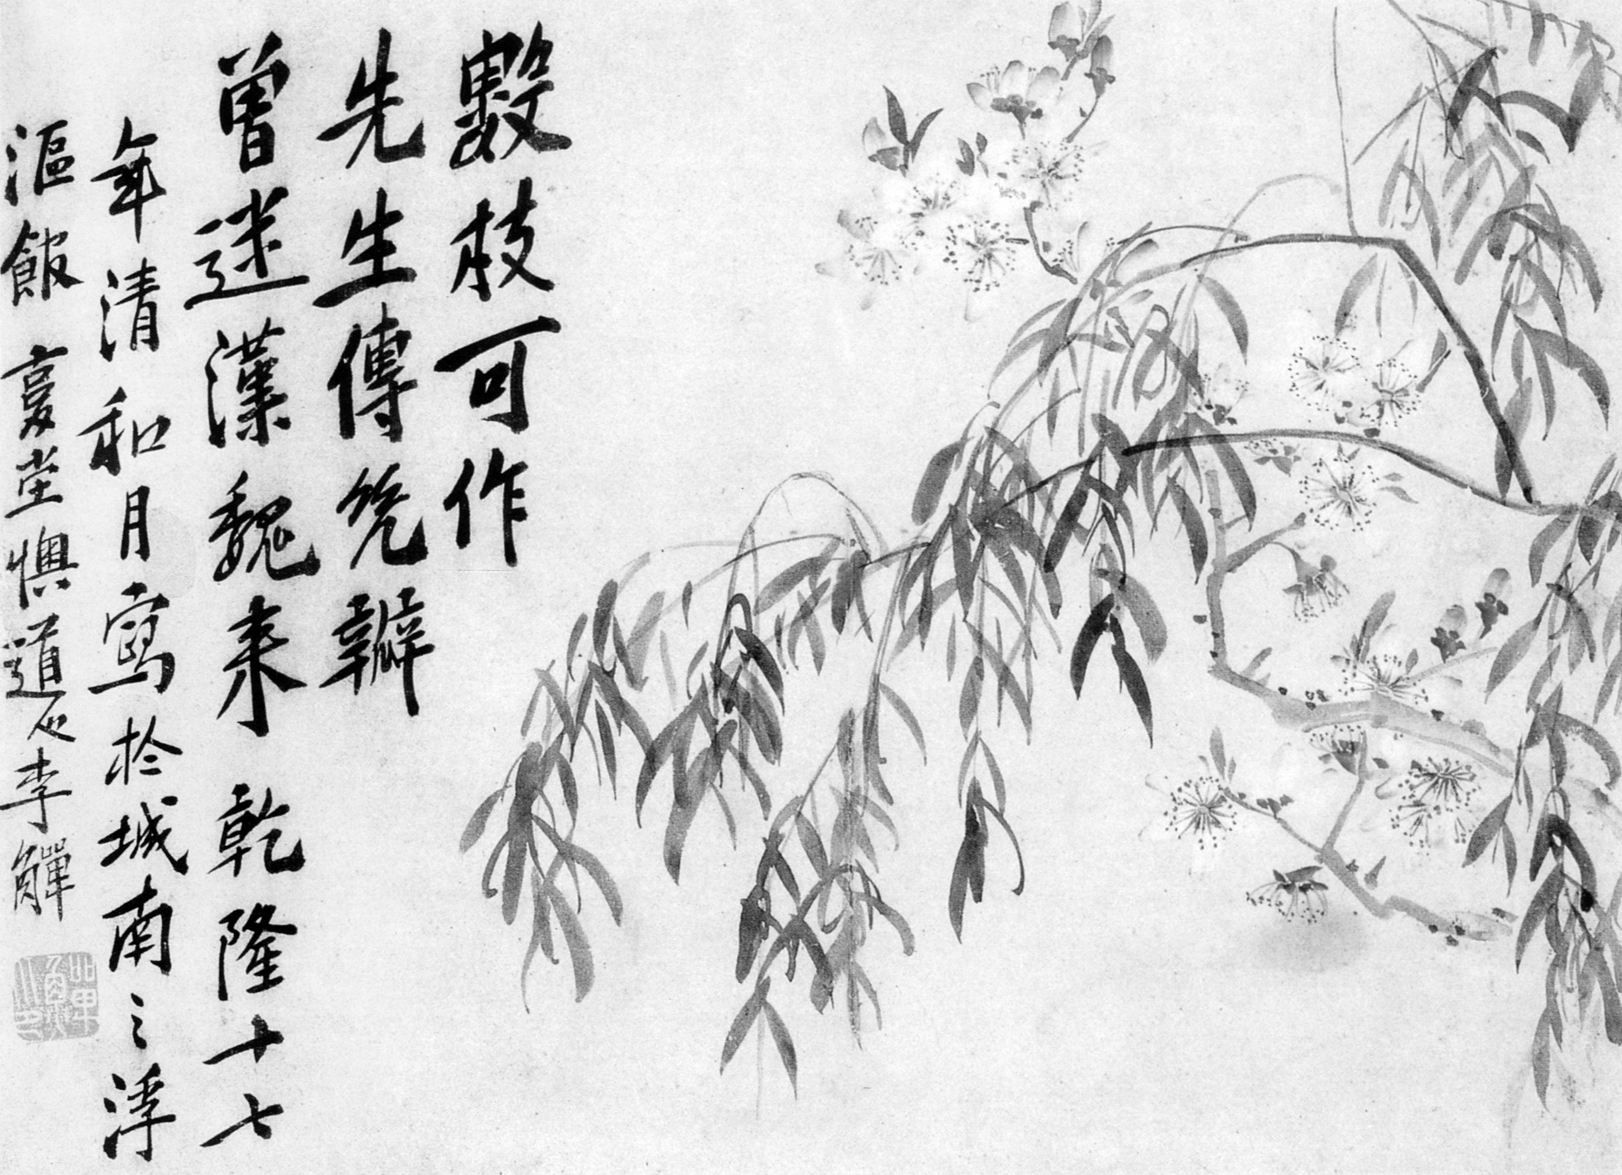 數枝可作
先生傳幾瓣
曾迷漢魏來 乾隆十七
年清和月寫於城南之浮
漚館 復堂懊道人李鱓